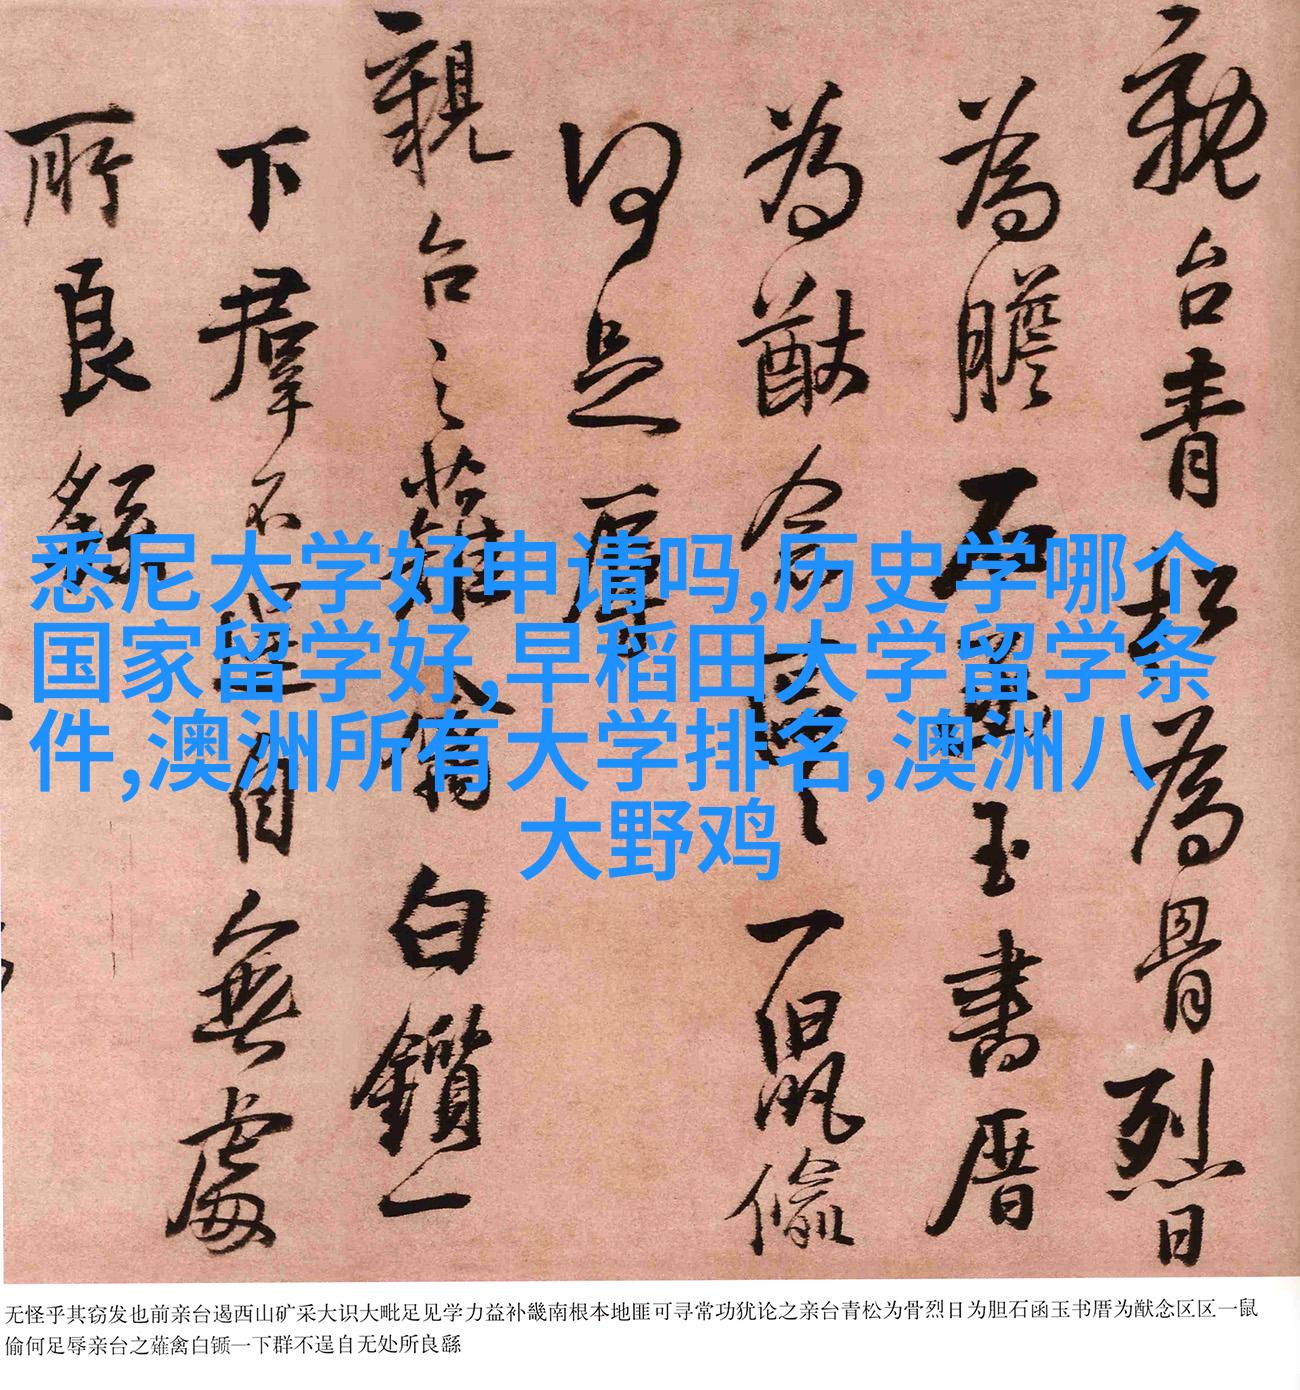 親台青松為骨烈日
為膽石函玉書厝
為猷念區區一鼠偷
何足辱
親台之薙禽白鑕一
下羣不逞自無處
所良繇
悉尼大学好申请吗,历史学哪个
国家留学好,早稻田大学留学条
件,澳洲所有大学排名,澳洲八
大野鸡
无怪乎其窃发也前亲台遏西山矿采大识大毗足见学力益补畿南根本地匪可寻常功犹论之亲台青松为骨烈日为胆石函玉书厝为猷念区区一鼠
偷何足辱亲台之薙禽白锧一下群不逞自无处所良繇